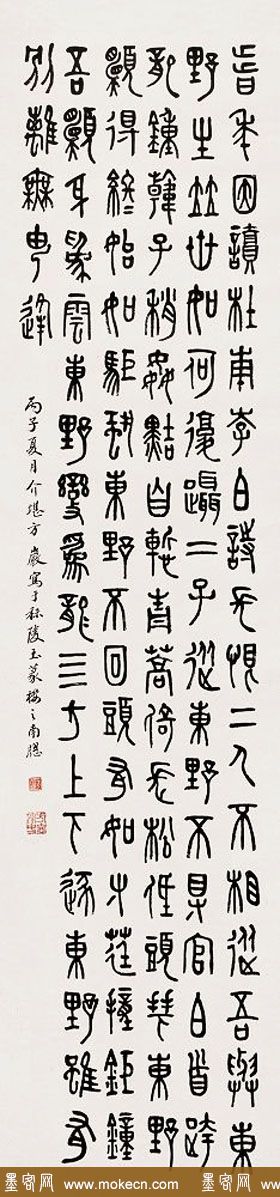 昔年因讀杜甫李白詩長恨二人不相從吾與東
野生竝世如何復躡二子從東野不見官白首誇
龍鐘韓子稍姦黠自慙青蒿倚長松低頭拜東野
願得終始如駏蛩東野不回頭有如寸莛撞鉅鐘
吾願身為雲東野變為龍亖方上下逐東野雖有
別離無由逢
丙子夏月介堪方巖寫于秣陵玉篆樓之南牕
墨客网 www.mokecn.com 墨客网 www.